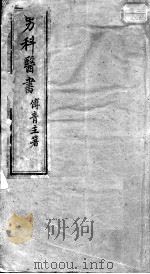 男科醫書 傅青主著
mtoou.info
mtoou.info